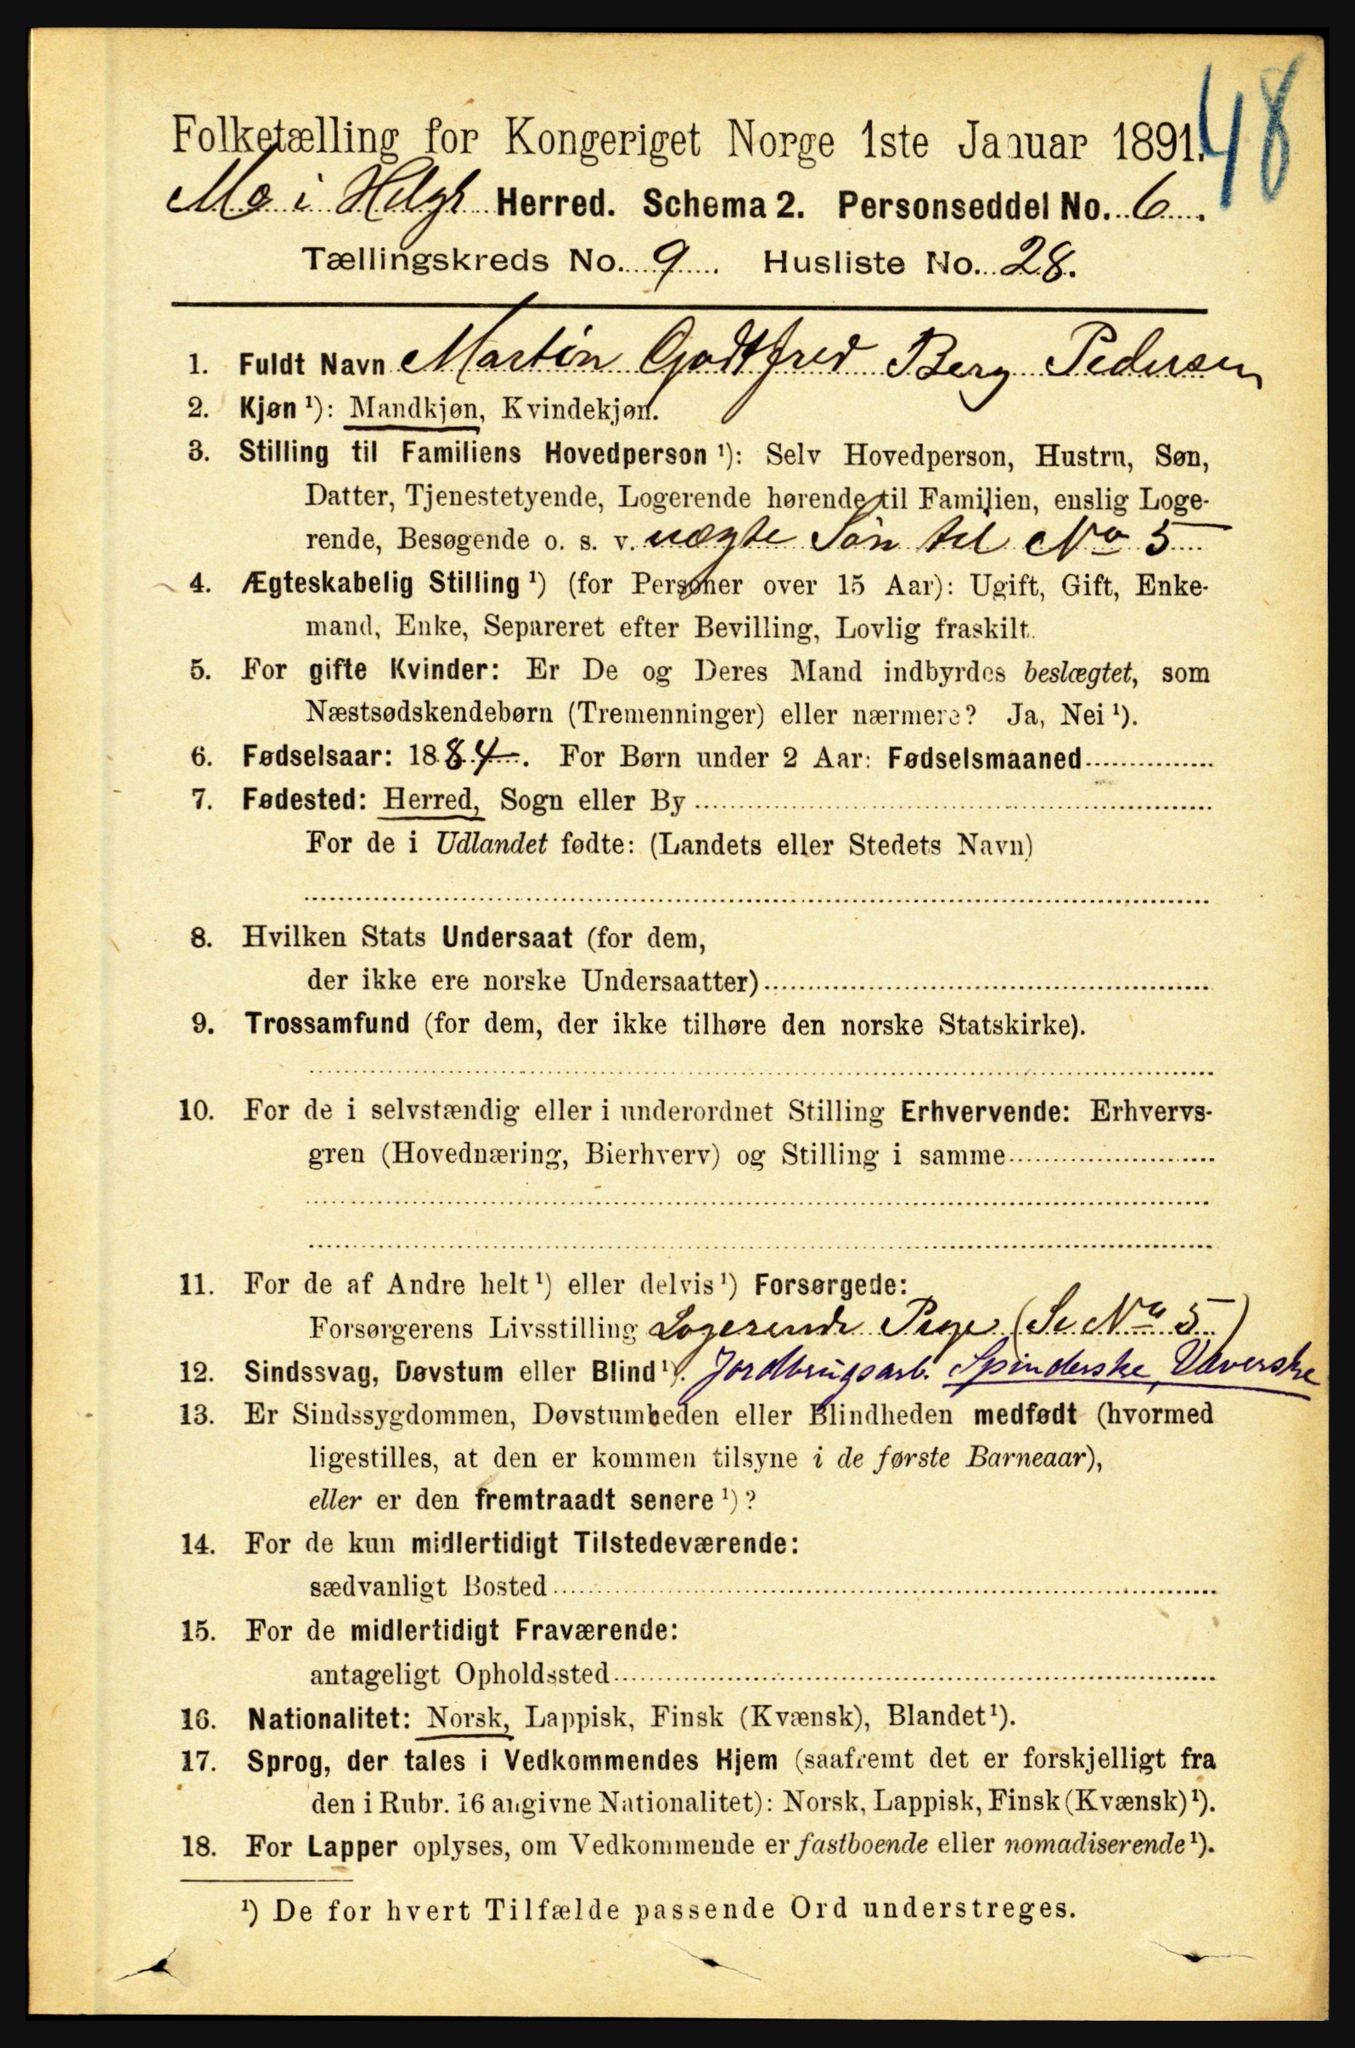 48
Folketælling for Kongeriget Norge 1ste Januar 1891.
Mo i Helgl Herred. Schema 2. Personseddel No. 6.
Tællingskreds No. 9 Husliste No. 28.
1. Fuldt Navn Martin Godtfred Berg Pedersen
2. Kjøn ¹): Mandkjøn, Kvindekjøn.
3. Stilling til Familiens Hovedperson ¹): Selv Hovedperson, Hustru, Søn,
Datter, Tjenestetyende, Logerende hørende til Familien, enslig Loge-
rende, Besøgende o. s. v. uægte Søn til No 5
4. Ægteskabelig Stilling ¹) (for Personer over 15 Aar): Ugift, Gift, Enke-
mand, Enke, Separeret efter Bevilling, Lovlig fraskilt.
5. For gifte Kvinder: Er De og Deres Mand indbyrdes beslægtet, som
Næstsødskendebørn (Tremenninger) eller nærmere? Ja, Nei ¹).
6. Fødselsaar: 1884. For Børn under 2 Aar: Fødselsmaaned
7. Fødested: Herred, Sogn eller By
For de i Udlandet fødte: (Landets eller Stedets Navn)
8. Hvilken Stats Undersaat (for dem,
der ikke ere norske Undersaatter)
9. Trossamfund (for dem, der ikke tilhøre den norske Statskirke).
10. For de i selvstændig eller i underordnet Stilling Erhvervende: Erhvervs-
gren (Hovednæring, Bierhverv) og Stilling i samme
11. For de af Andre helt ¹) eller delvis ¹) Forsørgede:
Forsørgerens Livsstilling Logerende Pige (Se No 5)
12. Sindssvag, Døvstum eller Blind ¹). Jordbrugsarb. Spinderske, Væverske
13. Er Sindssygdommen, Døvstumheden eller Blindheden medfødt (hvormed
ligestilles, at den er kommen tilsyne i de første Barneaar),
eller er den fremtraadt senere ¹)?
14. For de kun midlertidigt Tilstedeværende:
sædvanligt Bosted
15. For de midlertidigt Fraværende:
antageligt Opholdssted
16. Nationalitet: Norsk, Lappisk, Finsk (Kvænsk), Blandet ¹).
17. Sprog, der tales i Vedkommendes Hjem (saafremt det er forskjelligt fra
den i Rubr. 16 angivne Nationalitet): Norsk, Lappisk, Finsk (Kvænsk) ¹).
18. For Lapper oplyses, om Vedkommende er fastboende eller nomadiserende ¹).
¹) De for hvert Tilfælde passende Ord understreges.